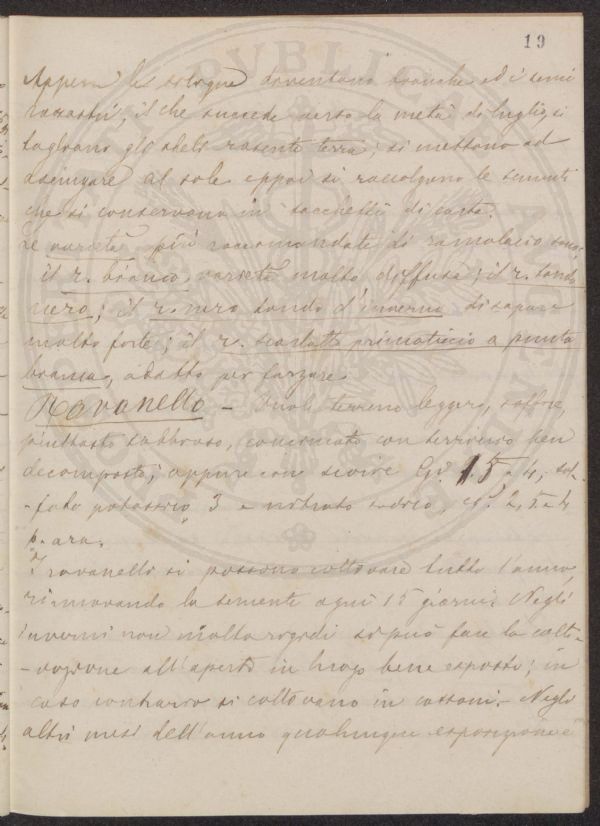 19
Appena le silique diventano bianche ed i semi
rossastri, il che succede verso la metà di luglio, si
tagliano gli steli rasente terra, si mettono ad
asciugare al sole eppoi si raccolgono le sementi
che si conservano in sacchetti di carta.
Le varietà più raccomandate di ramolaccio sono:
il r. bianco, varietà molto diffusa; il r. tondo
nero; il r. nero tondo d'inverno di sapore
molto forte; il r. scarlatto primaticcio a punta
bianca, adatto per forzare.
Ravanello – Vuole terreno leggero, soffice,
piuttosto sabbioso, concimato con terriccio ben
decomposto; oppure con scorie Cg. 5 a 4, sol-
-fato potassico 3 e nitrato sodico, cg. 2,5 a 4
p. ara.
I ravanelli si possono coltivare tutto l'anno,
rinnovando la semente ogni 15 giorni. Negli
inverni non molto rigidi si può fare la colti-
-vazione all'aperto in luogo bene esposto; in
caso contrario si coltivano in cassoni. – Negli
altri mesi dell'anno qualunque esposizione è
PVBLICVM